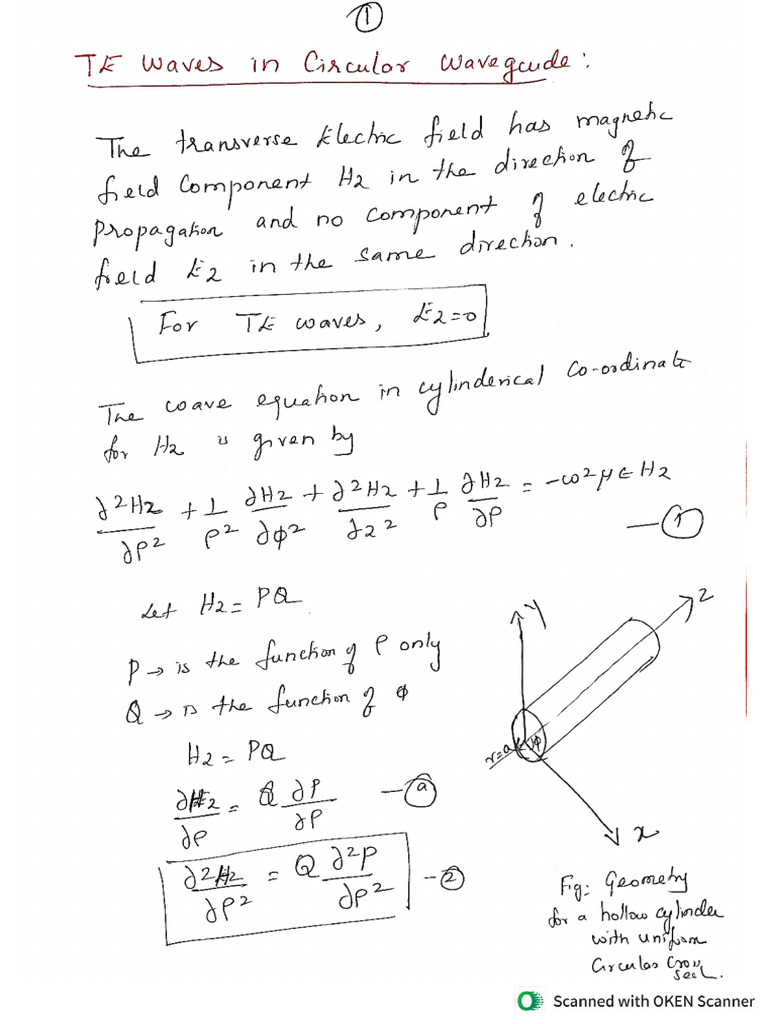 ①
TE waves in Circular waveguide:
The transverse Electric field has magnetic
field component Hz in the direction of
propagation and no component of electric
field Ez in the same direction.
For TE waves, Ez=0
The wave equation in cylinderical co-ordinate
for Hz is given by
∂²Hz/∂ρ² + 1/ρ² ∂Hz/∂φ² + ∂²Hz/∂z² + 1/ρ ∂Hz/∂ρ = -ω²μ∈Hz
—①
Let Hz = PQ
P → is the function of ρ only
Q → is the function of φ
Hz = PQ
∂Hz/∂ρ = Q ∂P/∂ρ —ⓐ
∂²Hz/∂ρ² = Q ∂²P/∂ρ² —②
y
z
r=a
φ
x
Fig: Geometry
for a hollow cylinder
with uniform
Circular Cross
sect.
Scanned with OKEN Scanner